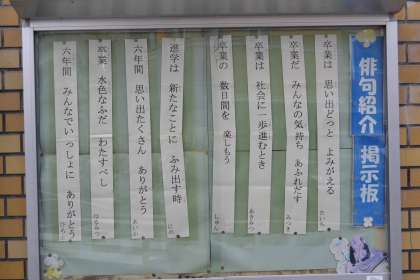 俳句紹介 掲示板
卒業は 思い出どっと よみがえる
卒業だ みんなの気持ち あふれだす
みつき
卒業は 社会に一歩進むとき
ありみつ
卒業の 数日間を 楽しもう
しゅん
進学は 新たなことに ふみ出す時
六年間 思い出たくさん ありがとう
あいり
卒業 水色なふだ わたすべし
なるみ
六年間 みんなでいっしょに ありがとう